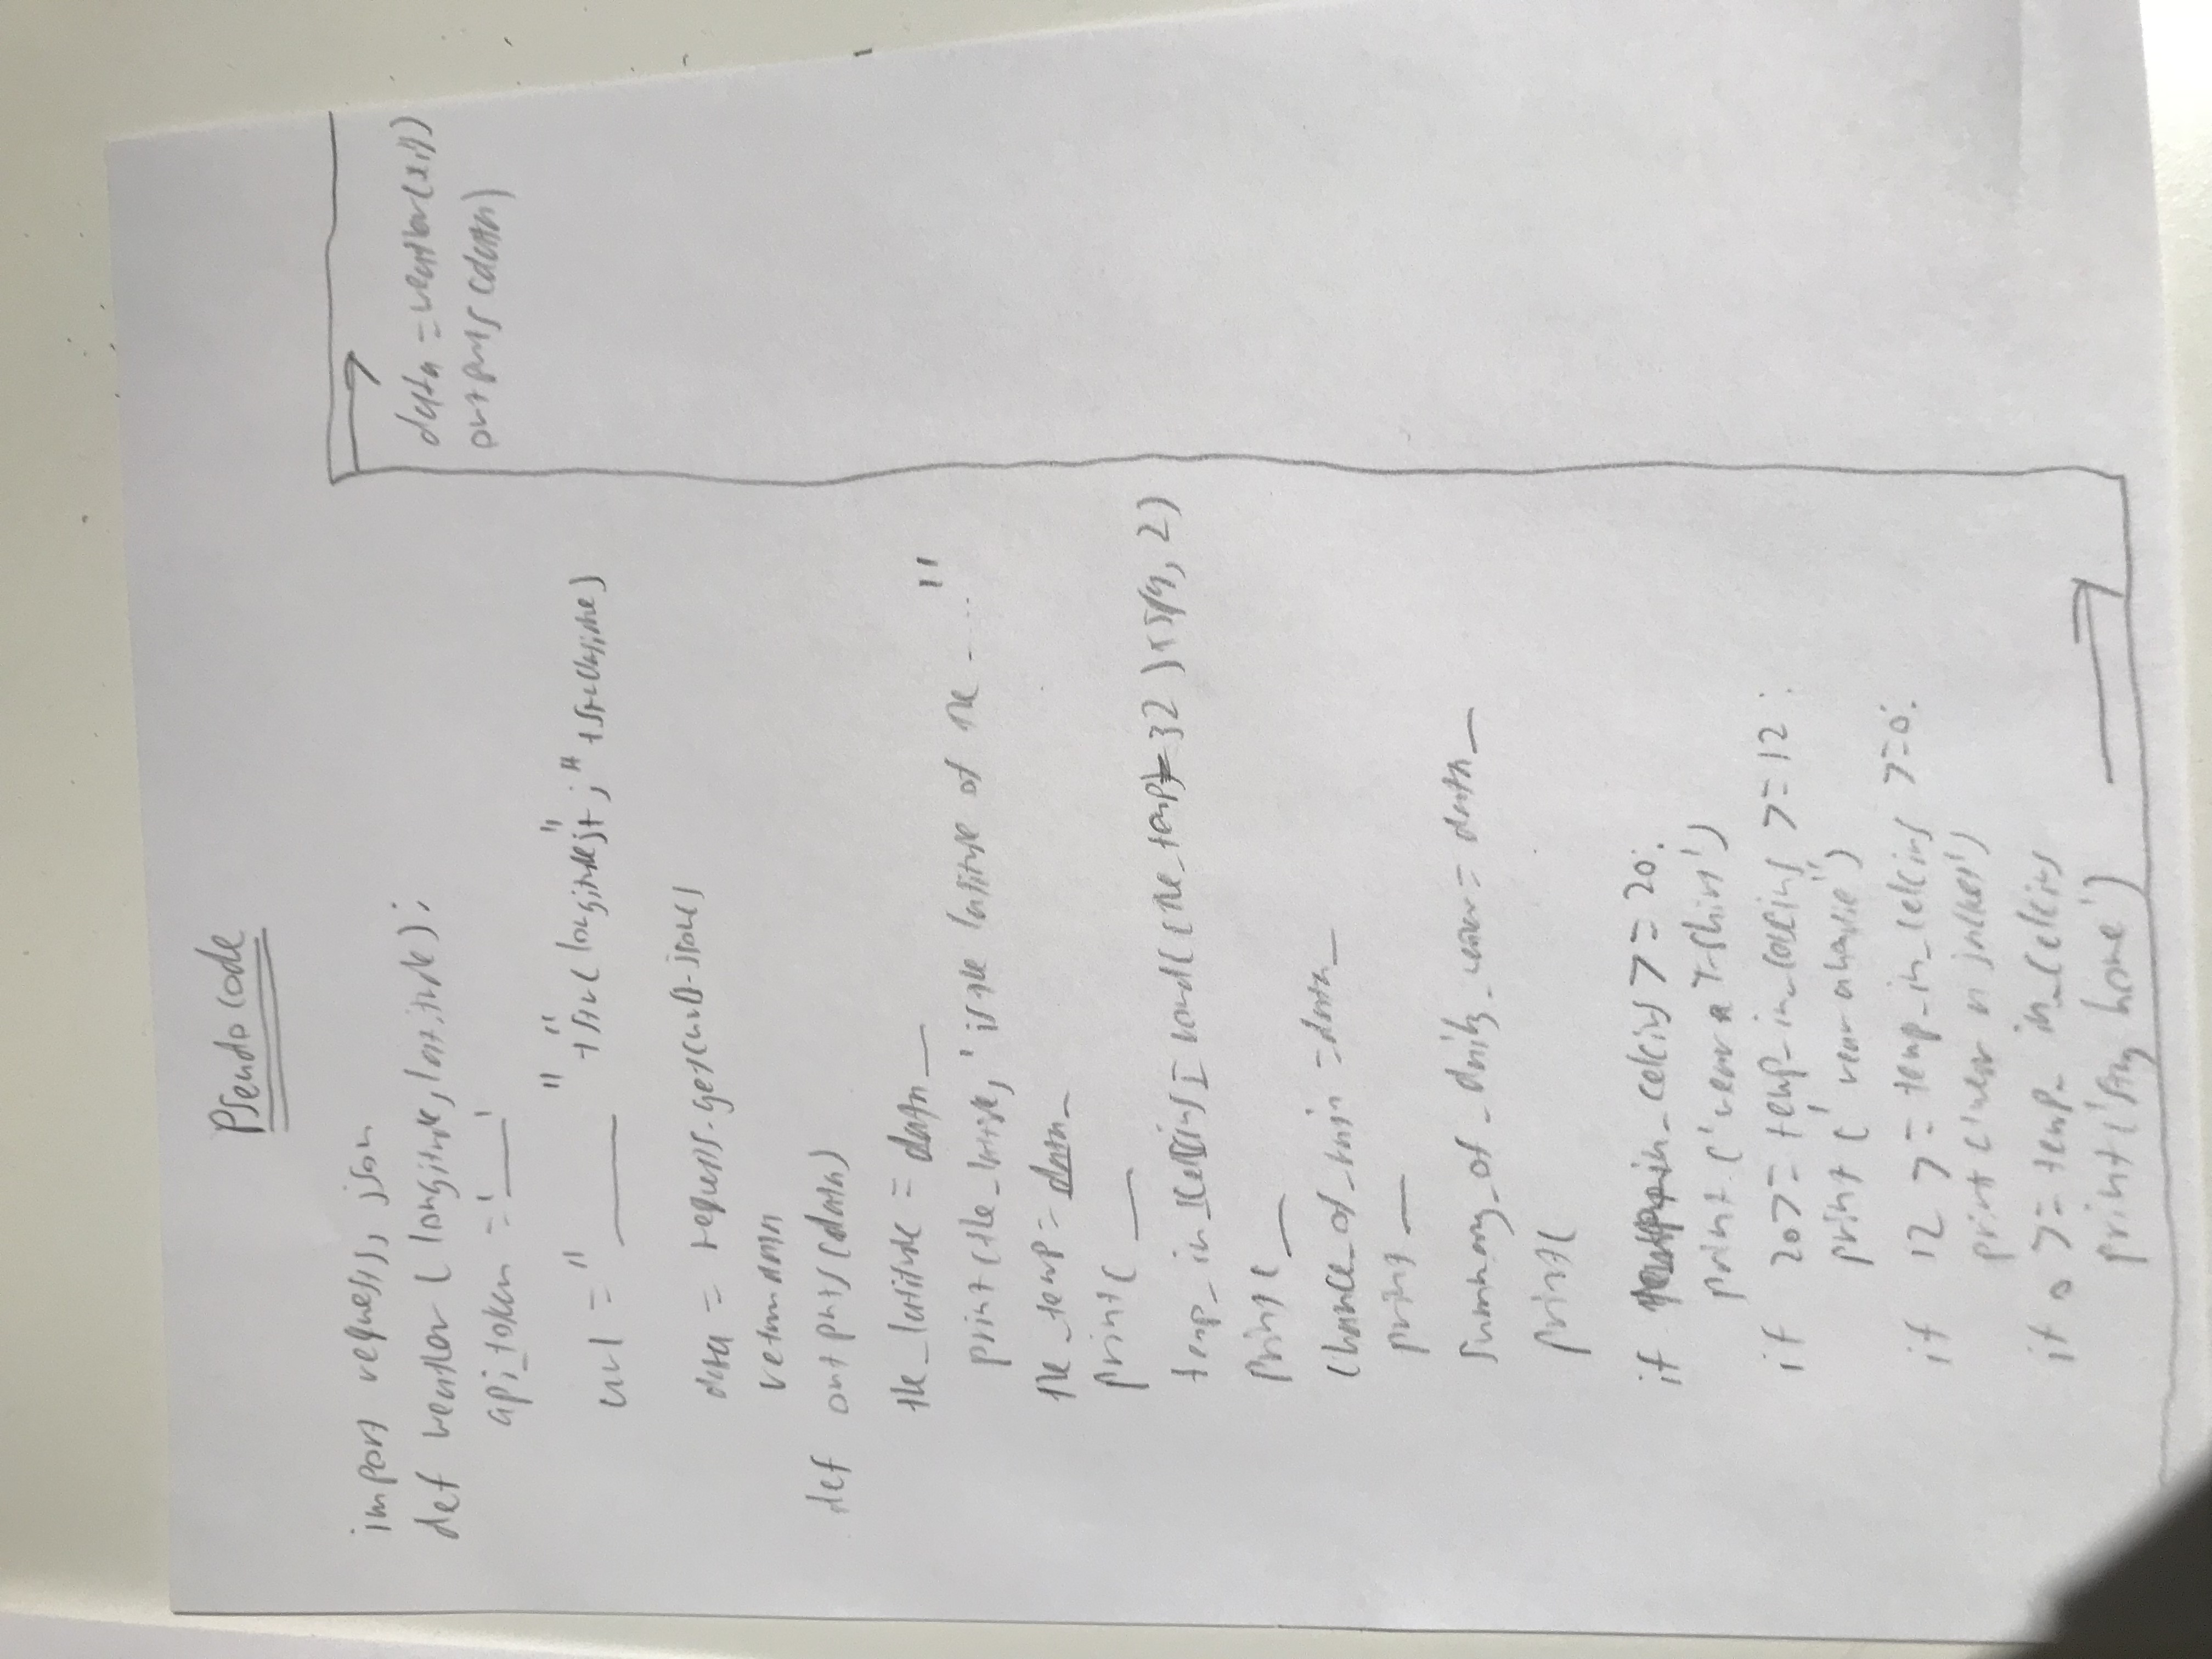 Pseudo code
import requests, json
def weather (longitude, latitude):
api_token = '___'
url = "___" + "" + str(longitude)+ "," + str(latitude)
data = requests.get(url).json()
return data
def outputs(data)
the_latitude = data_
print(the_latitude, 'is the latitude of the ...."
the_temp = data_
print( __
temp_in_celcius = round((the_temp - 32)*5/9, 2)
print( __
chance_of_rain = data_
print __
Summary_of_daily_ = data_
print(
if temp_in_celcius >= 20:
print ('wear a T-shirt')
if 20 >= temp_in_celcius >= 12:
print ('wear a hoodie')
if 12 >= temp_in_celcius >= 0:
print ('wear a jacket')
if 0 >= temp_in_celcius
print ('stay home')
data = weather(x,y)
outputs(data)